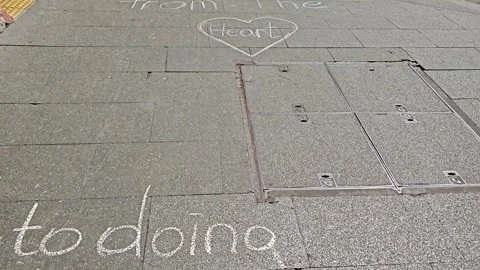 from The
Heart
to doing